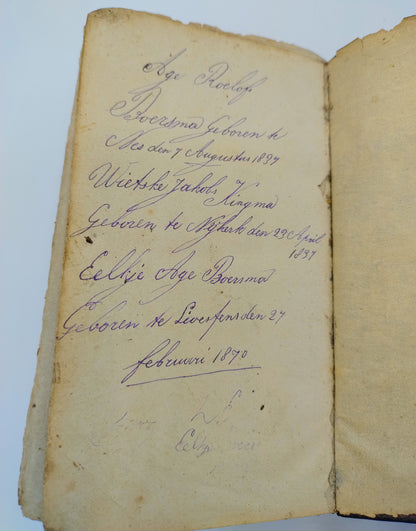 Age Roelof
Boersma Geboren te
Nes den 7 Augustus 1837
Wietske Jakobs Kingma
Geboren te Nijkerk den 29 April
1837
Eelkje Age Boersma
Geboren te Lioessens den 27
februari 1870